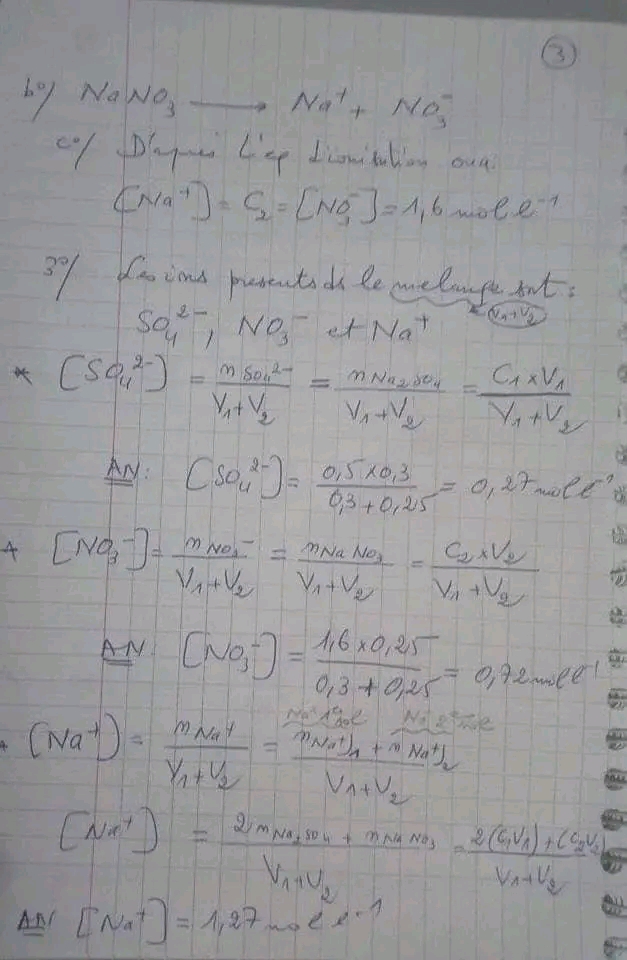 3
b°/ NaNO₃ ⟶ Na⁺ + NO₃⁻
c°/ D'après l'eq d'ionisation on a:
[Na⁺] = C₂ = [NO₃⁻] = 1,6 mol l⁻¹
3°/ Les ions presents ds le mélange sont:
V₁+V₂
SO₄²⁻, NO₃⁻ et Na⁺
* [SO₄²⁻] = nSO₄²⁻ / V₁+V₂ = nNa₂SO₄ / V₁+V₂ = C₁×V₁ / V₁+V₂
AN: [SO₄²⁻] = 0,5×0,3 / 0,3+0,25 = 0,27 mol l⁻¹
* [NO₃⁻] = nNO₃⁻ / V₁+V₂ = nNaNO₃ / V₁+V₂ = C₂×V₂ / V₁+V₂
AN: [NO₃⁻] = 1,6×0,25 / 0,3+0,25 = 0,72 mol l⁻¹
* [Na⁺] = nNa⁺ / V₁+V₂ = nNa⁺)₁ + nNa⁺)₂ / V₁+V₂
[Na⁺] = 2nNa₂SO₄ + nNaNO₃ / V₁+V₂ = 2(C₁V₁)+(C₂V₂) / V₁+V₂
AN: [Na⁺] = 1,27 mol l⁻¹